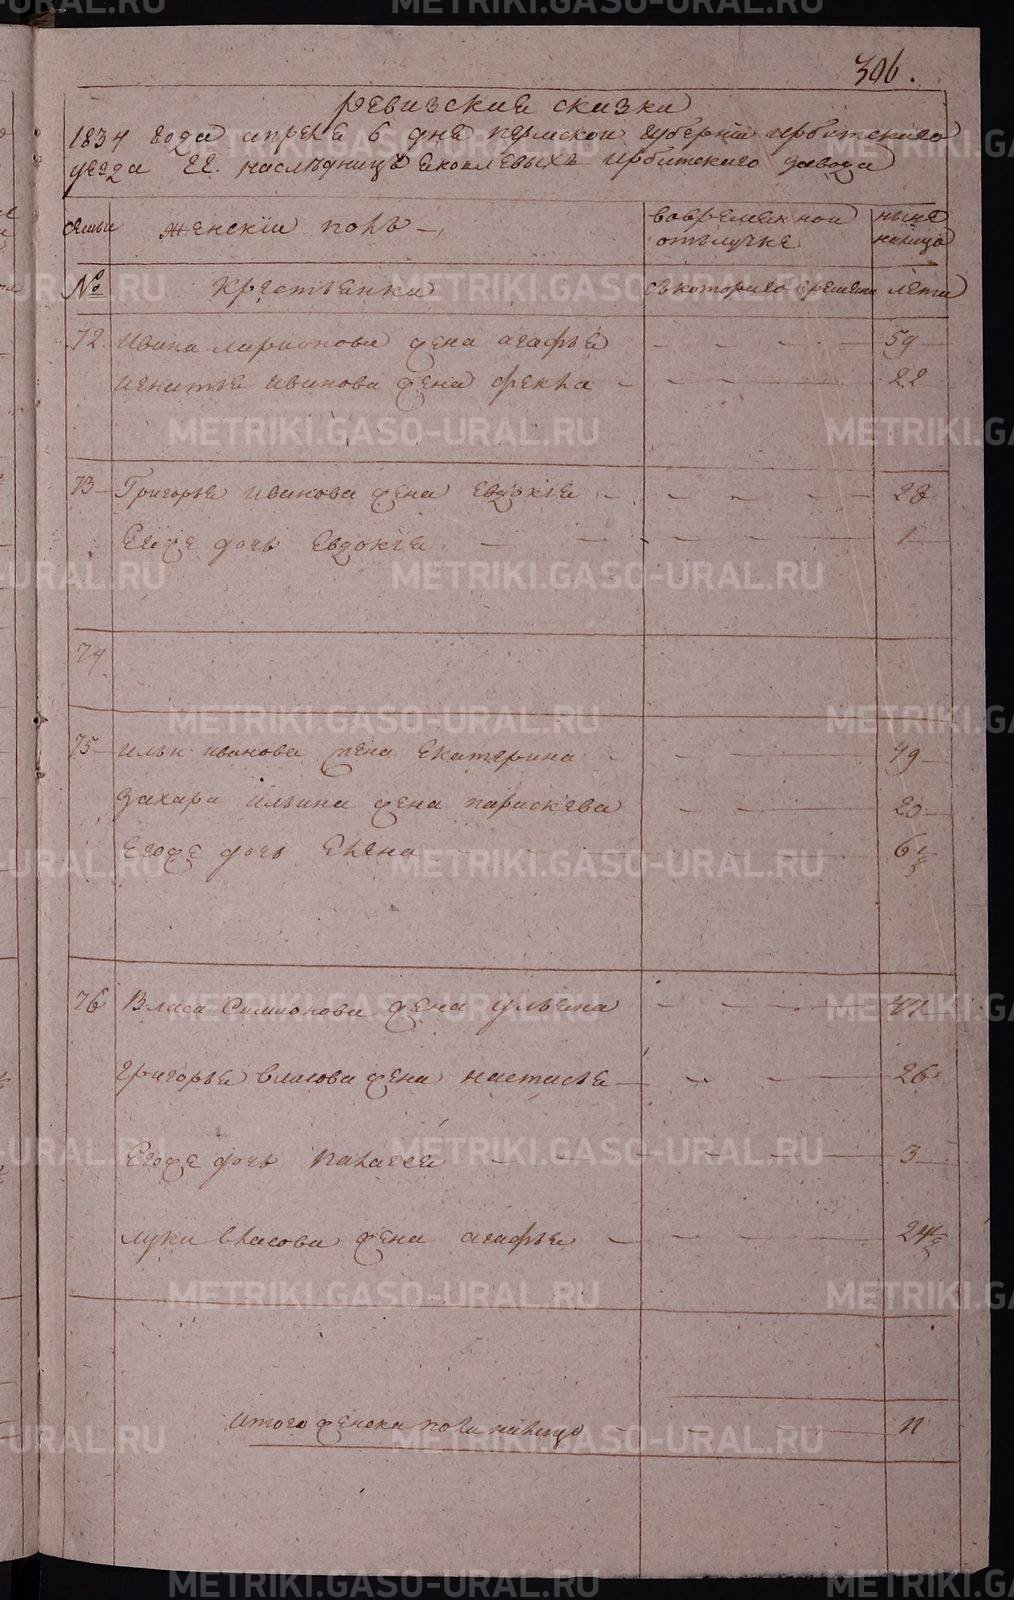 306.
ревизския сказки
1834 года апреля 6 дня пермской губернiи ирбитского
уезда гг. наследницъ яковлевыхъ ирбитского завода
семьи женскiи полъ вовременной ныне
отълучке налицо
№ крестьянки съкоторого времени лета
72 ивана ларионова жена агафья 59
игнатья иванова жена фекла 22
73 Григорья иванова жена евдокiя 28
Егоже дочь Евдокiя 1
74
75 ильи иванова жена екатерина 49
захара ильина жена парискева 20
егоже дочь елена 6
76 Власа Симионова жена ульяна 47
григорья власова жена настасья 26
Егоже дочь палагея 3
луки власова жена агафья 24
итого женска пола налицо 11
METRIKI.GASO-URAL.RU